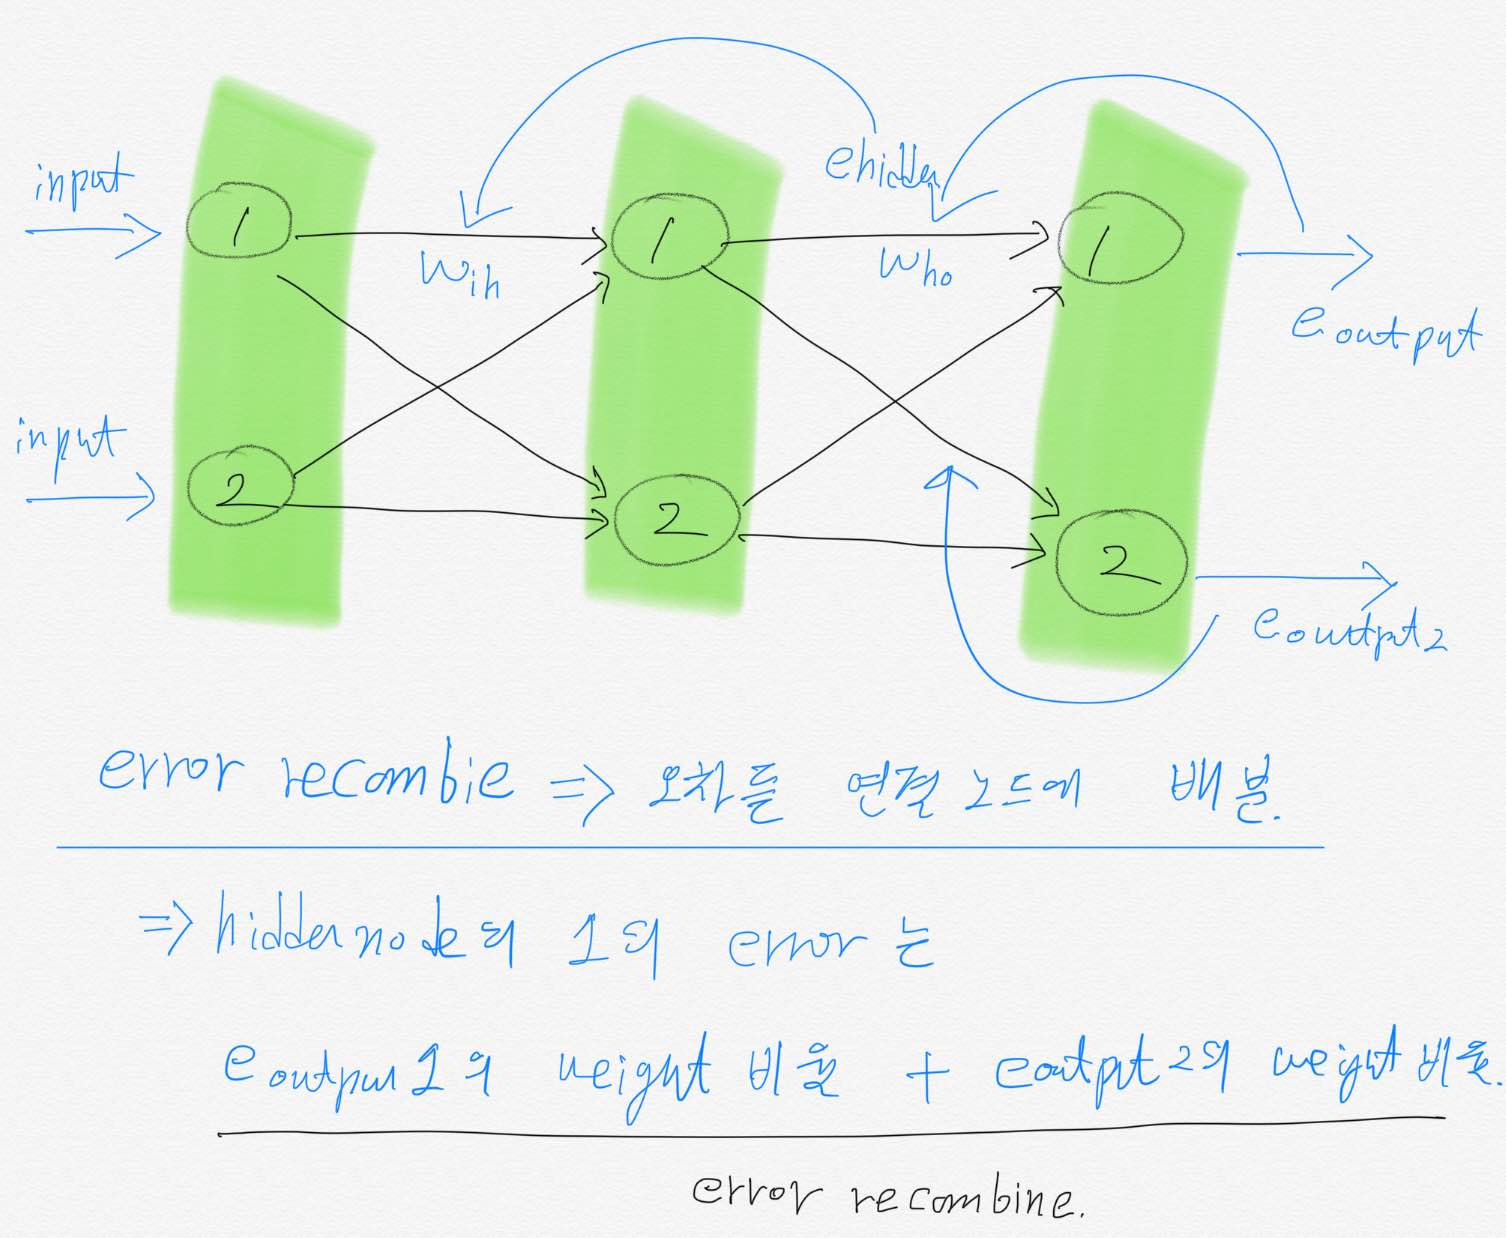 input
1
1
1
ehidden
Wih
Who
eoutput
input
2
2
2
eoutput2
error recombie => 오차들 연결 노드에 배분.
=> hidden node의 1의 error 는
eoutput 1의 weight 비율 + eoutput 2의 weight 비율.
error recombine.